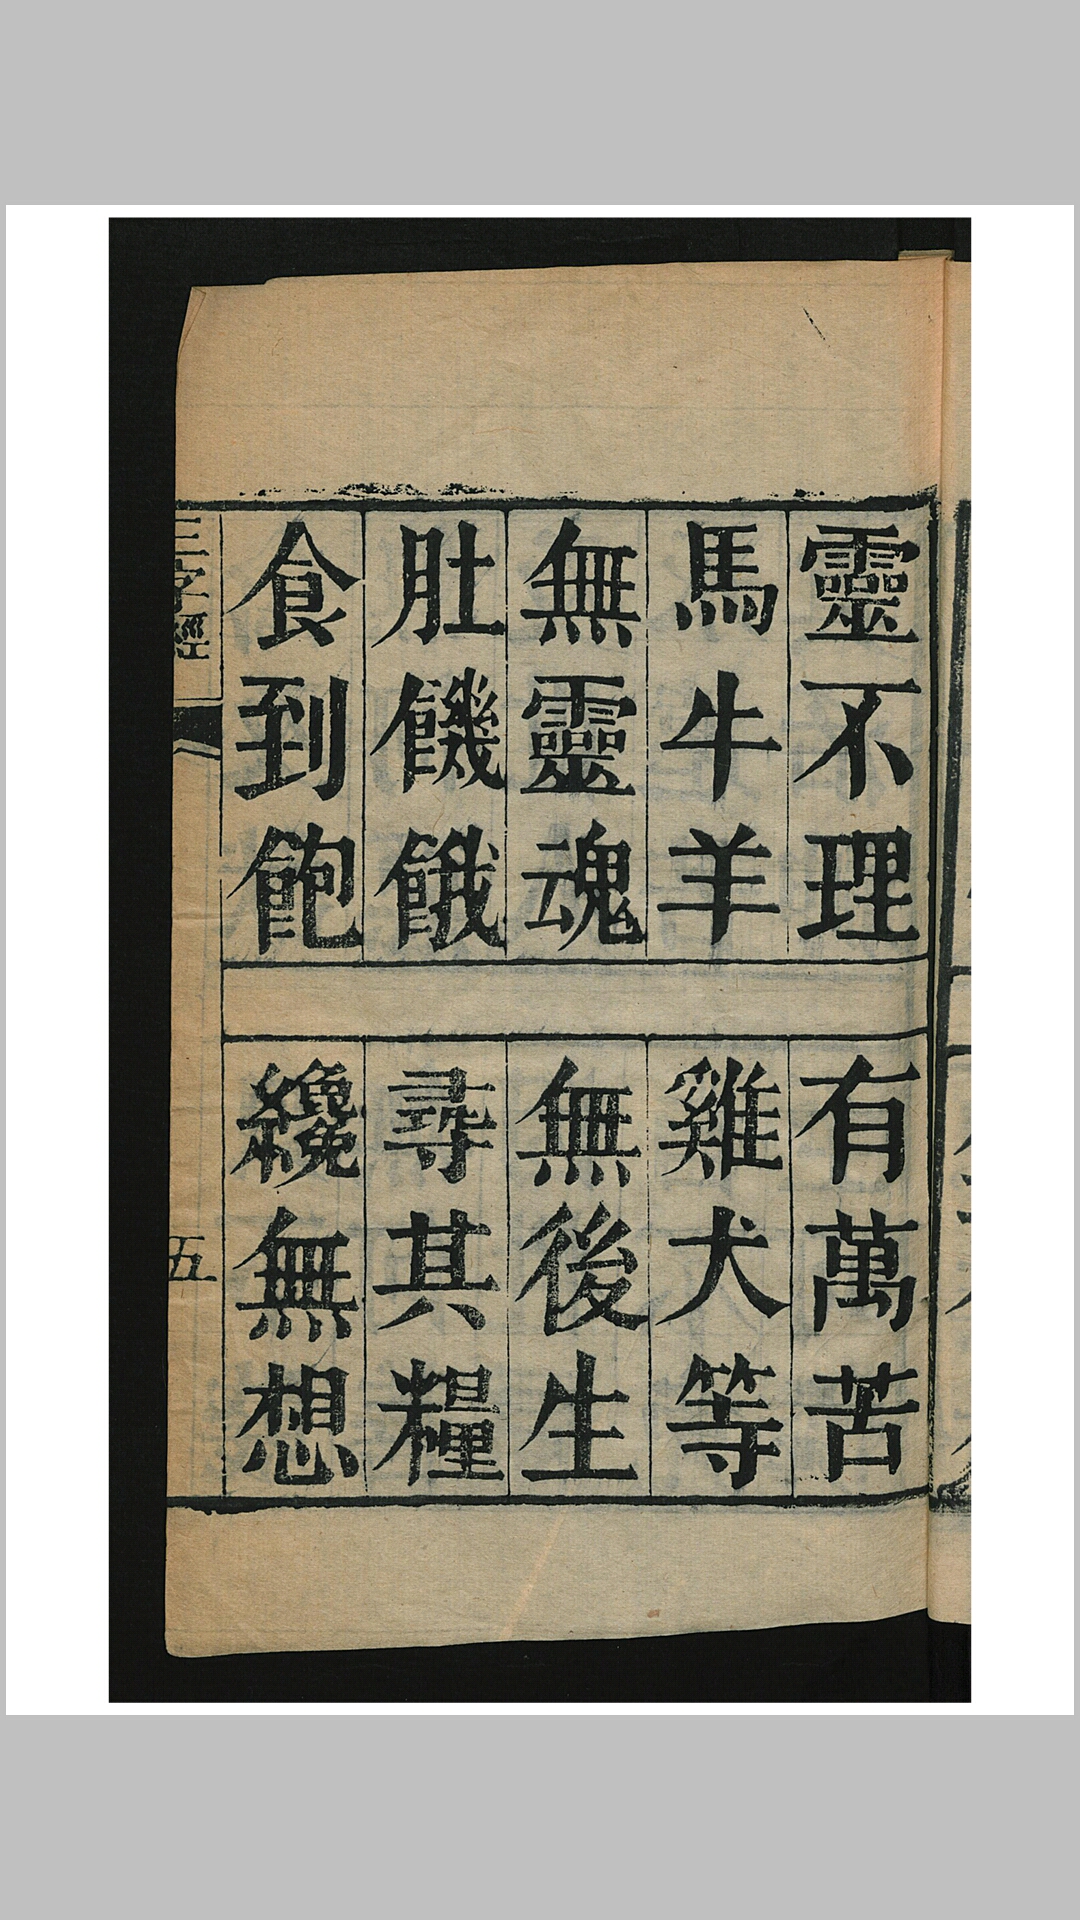 靈不理
有萬苦
馬牛羊
雞犬等
無靈魂
無後生
肚饑餓
尋其糧
食到飽
纔無想
三字經
五